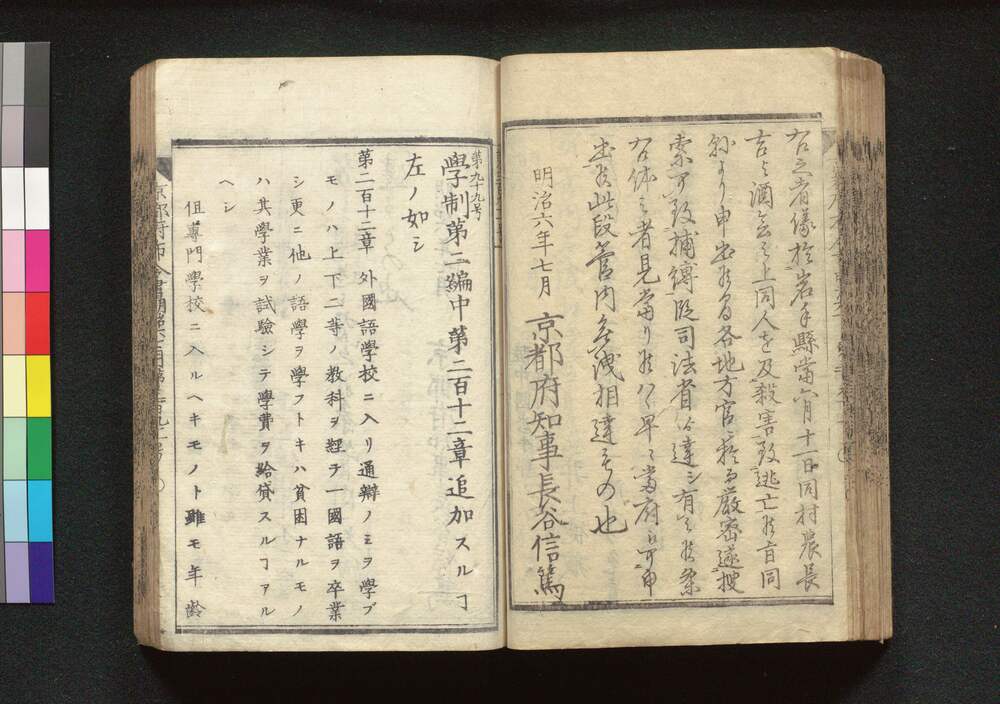 右之者儀於岩手縣當六月十一日同村農長
吉と酒会之上同人を及殺害致逃亡候旨同
縣より申出候ニ付各地方官於而厳密遂捜
索可致捕縛段司法省ゟ達シ有之候条
右体之者見當り候ハヽ早々當府江可申
出候此段管内無洩相達るもの也
明治六年七月 京都府知事長谷信篤
第九十九号
學制第二編中第二百十二章追加スルヿ
左ノ如シ
第二百十二章 外國語學校ニ入リ通辯ノミヲ學ブ
モノハ上下二等ノ教科ヲ經テ一國語ヲ卒業
シ更ニ他ノ語學ヲ學フトキハ貧困ナルモノ
ハ其學業ヲ試驗シテ學費ヲ給貸スルヿアル
ヘシ
但專門學校ニ入ルヘキモノト雖モ年齡